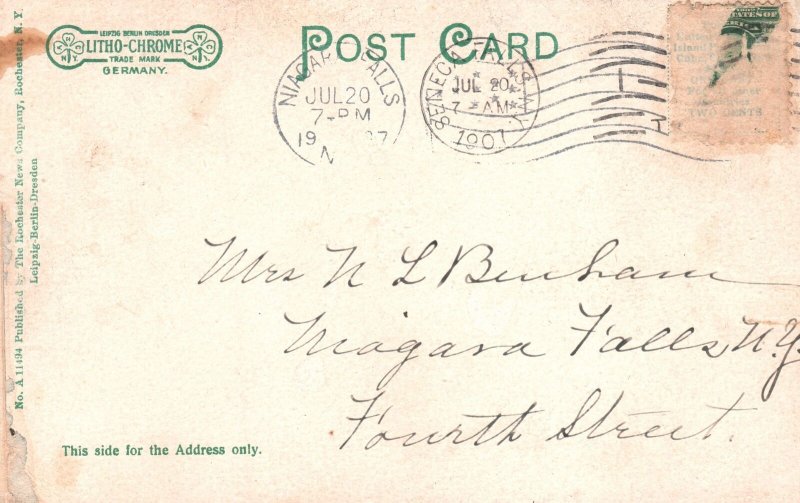 LEIPZIG BERLIN DRESDEN
LITHO-CHROME
TRADE MARK
GERMANY.
N.Y.
POST CARD
NIAGARA FALLS
JUL 20
7-PM
19 07
N
SENECA FALLS, N.Y.
JUL 20
7 AM
1907
STATES OF
No. A 11494 Published by The Rochester News Company, Rochester, N. Y.
Leipzig-Berlin-Dresden
Mrs N L Benham
Niagara Falls N.Y.
Fourth Street.
This side for the Address only.